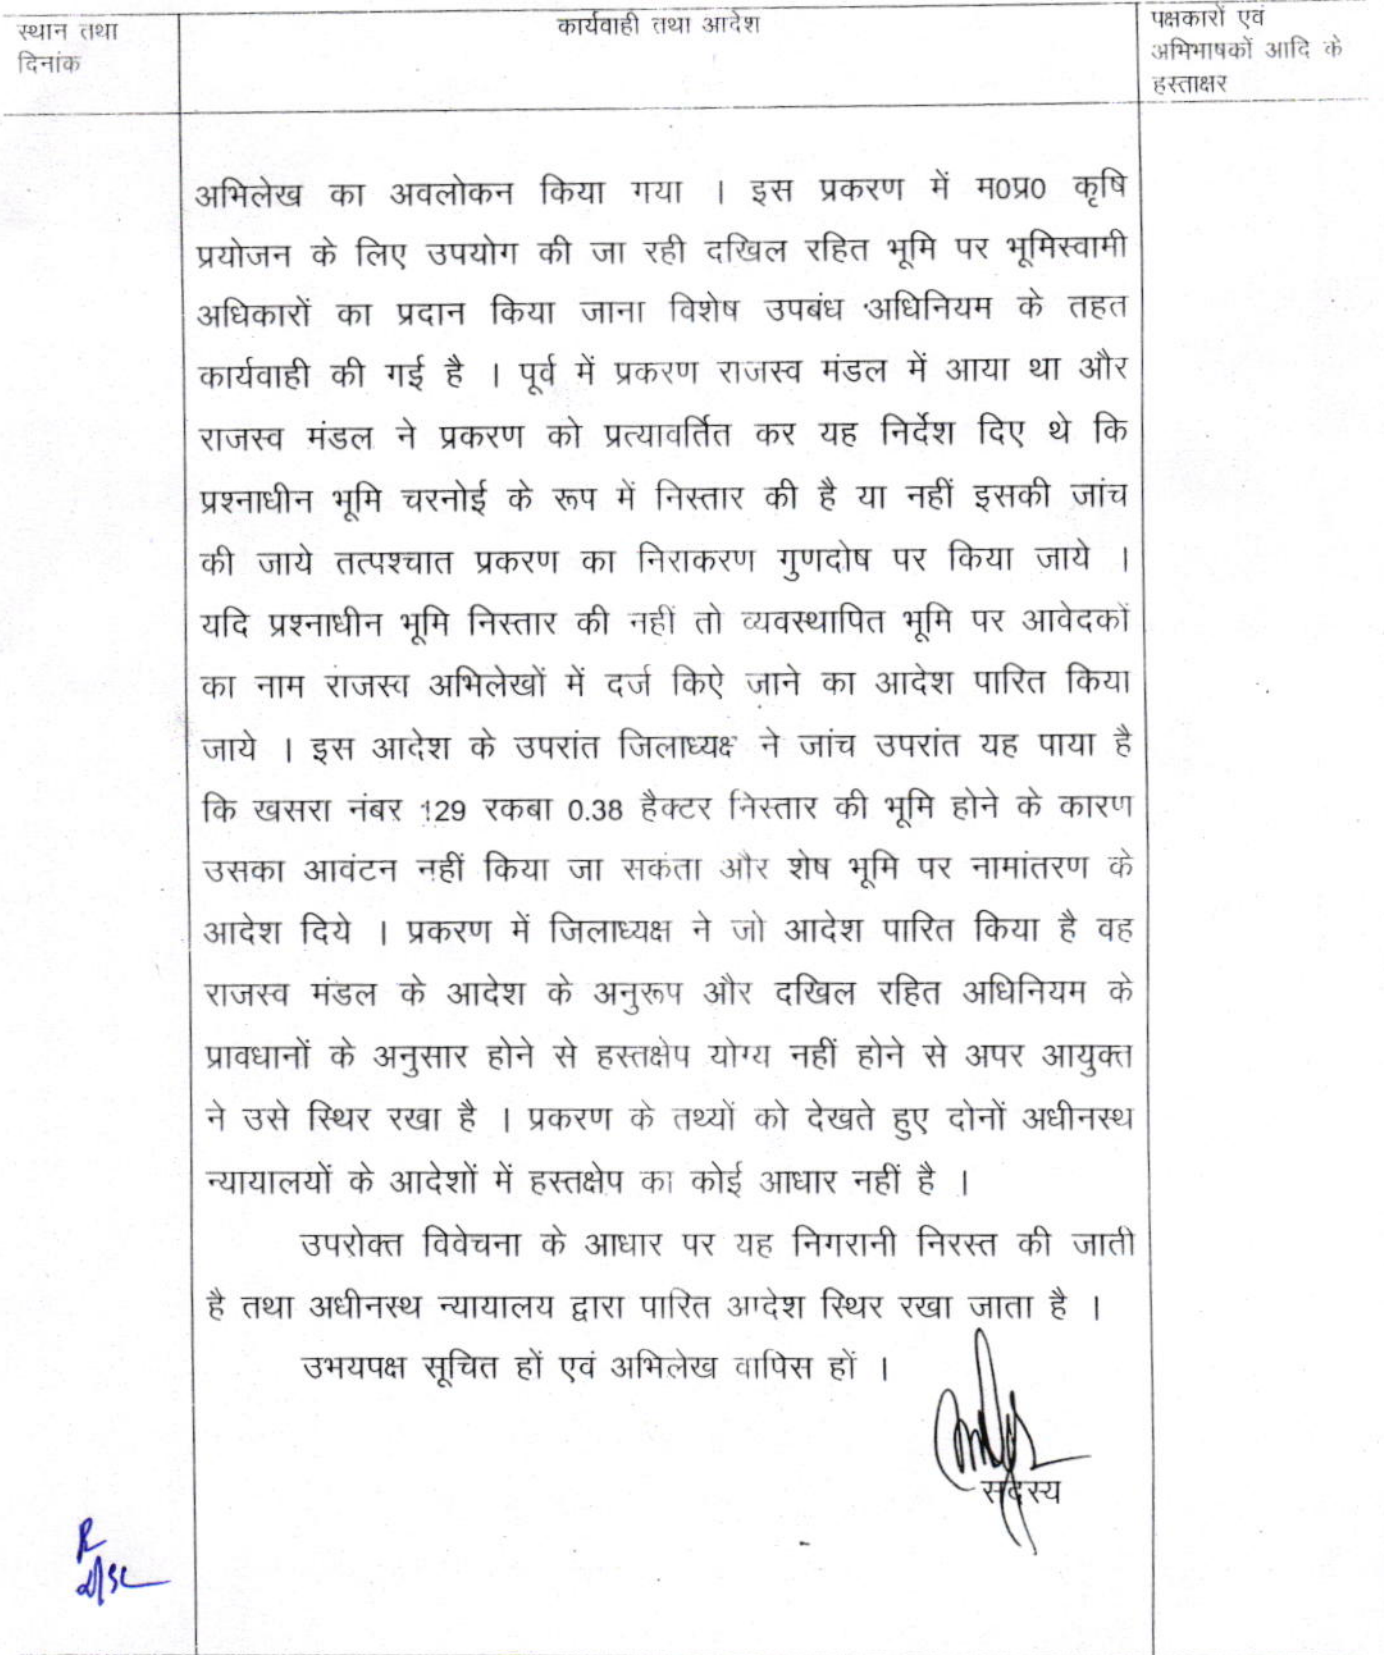 स्थान तथा
दिनांक
कार्यवाही तथा आदेश
पक्षकारों एवं
अभिभाषकों आदि के
हस्ताक्षर
अभिलेख का अवलोकन किया गया । इस प्रकरण में म0प्र0 कृषि
प्रयोजन के लिए उपयोग की जा रही दखिल रहित भूमि पर भूमिस्वामी
अधिकारों का प्रदान किया जाना विशेष उपबंध अधिनियम के तहत
कार्यवाही की गई है । पूर्व में प्रकरण राजस्व मंडल में आया था और
राजस्व मंडल ने प्रकरण को प्रत्यावर्तित कर यह निर्देश दिए थे कि
प्रश्नाधीन भूमि चरनोई के रूप में निस्तार की है या नहीं इसकी जांच
की जाये तत्पश्चात प्रकरण का निराकरण गुणदोष पर किया जाये ।
यदि प्रश्नाधीन भूमि निस्तार की नहीं तो व्यवस्थापित भूमि पर आवेदकों
का नाम राजस्व अभिलेखों में दर्ज किऐ जाने का आदेश पारित किया
जाये । इस आदेश के उपरांत जिलाध्यक्ष ने जांच उपरांत यह पाया है
कि खसरा नंबर 129 रकबा 0.38 हैक्टर निस्तार की भूमि होने के कारण
उसका आवंटन नहीं किया जा सकता और शेष भूमि पर नामांतरण के
आदेश दिये । प्रकरण में जिलाध्यक्ष ने जो आदेश पारित किया है वह
राजस्व मंडल के आदेश के अनुरूप और दखिल रहित अधिनियम के
प्रावधानों के अनुसार होने से हस्तक्षेप योग्य नहीं होने से अपर आयुक्त
ने उसे स्थिर रखा है । प्रकरण के तथ्यों को देखते हुए दोनों अधीनस्थ
न्यायालयों के आदेशों में हस्तक्षेप का कोई आधार नहीं है ।
उपरोक्त विवेचना के आधार पर यह निगरानी निरस्त की जाती
है तथा अधीनस्थ न्यायालय द्वारा पारित आदेश स्थिर रखा जाता है ।
उभयपक्ष सूचित हों एवं अभिलेख वापिस हों ।
सदस्य